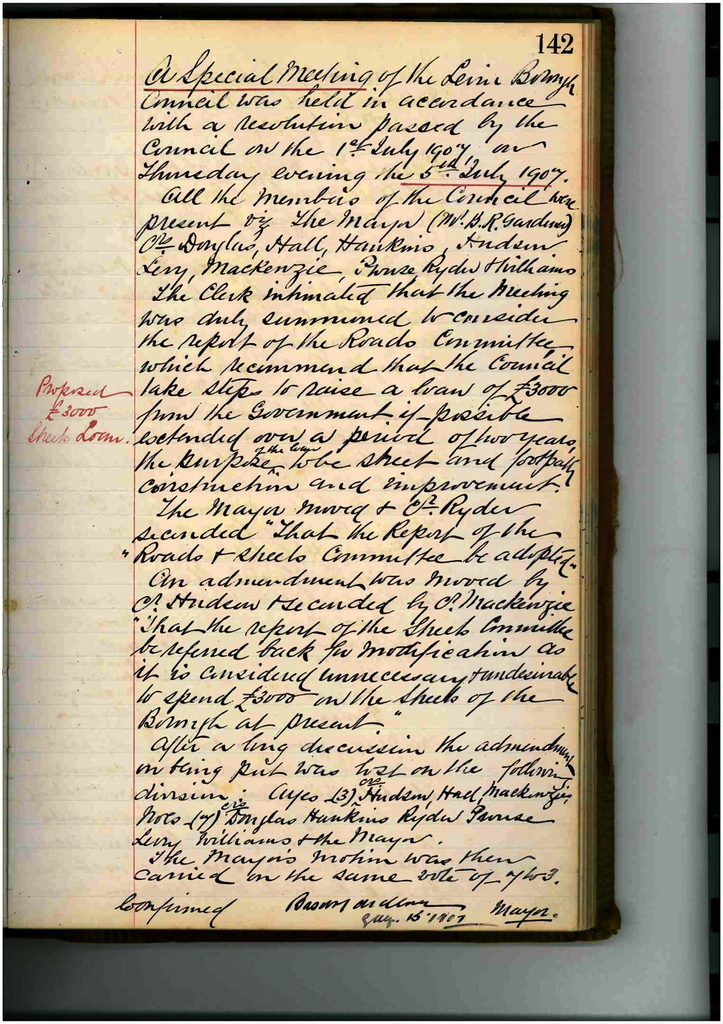 142
A Special Meeting of the Levin Borough
Council was held in accordance
with a resolution passed by the
Council on the 1st July 1907, on
Thursday evening the 5th July 1907.
All the Members of the Council were
present viz The Mayor (Mr. B. R. Gardener)
Crs Douglas, Hall, Hankins, Hudson
Levy, Mackenzie, Prouse Ryder & Williams
The Clerk intimated that the Meeting
was duly summoned to consider
the report of the Roads Committee,
which recommend that the Council
take steps to raise a loan of £3000
Proposed
£3000
Streets Loan.
from the Government if possible
extended over a period of two years,
the purpose of the loan to be street and footpath
construction and improvement.
The Mayor moved & Cr. Ryder
seconded "That the Report of the
"Roads & Streets Committee be adopted"
An admendment was moved by
Cr. Hudson & seconded by Cr. Mackenzie
"That the report of the Streets Committee
be referred back for modification as
it is considered unnecessary & undesirable
to spend £3000 on the streets of the
Borough at present"
After a long discussion the admendment
on being put was lost on the following
division: Ayes (3) Crs Hudson, Hall Mackenzie,
Noes (7) Crs Douglas Hankins Ryder Prouse
Levy Williams & the Mayor.
The Mayor's motion was then
carried on the same vote of 7 to 3.
Confirmed
Mayor.
Aug. 15 1907